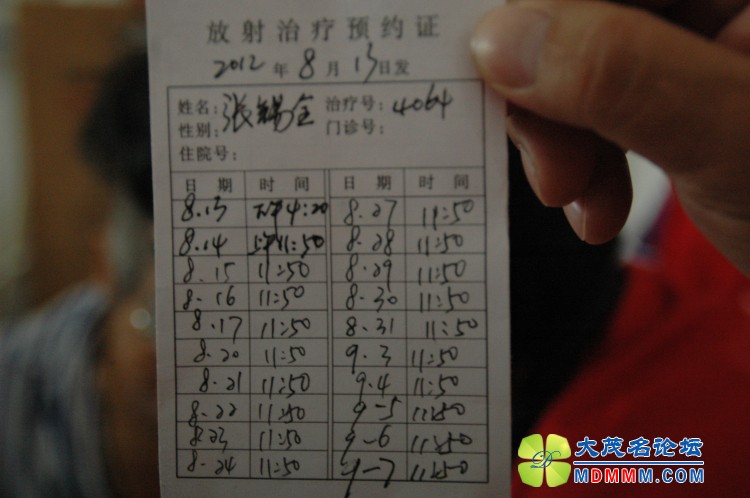 放射治疗预约证
2012年8月13日发
姓名：张锡全 治疗号：4064
性别： 门诊号：
住院号：
日期 时间 日期 时间
8.13 下午4:20 8.27 11:50
8.14 上午11:50 8.28 11:50
8.15 11:50 8.29 11:50
8-16 11:50 8.30 11:50
8.17 11:50 8.31 11:50
8.20 11:50 9.3 11:50
8.21 11:50 9.4 11:50
8-22 11:50 9-5 11:50
8.23 11:50 9-6 11:50
8-24 11:50 9-7 11:50
大茂名论坛
MDMMM.COM